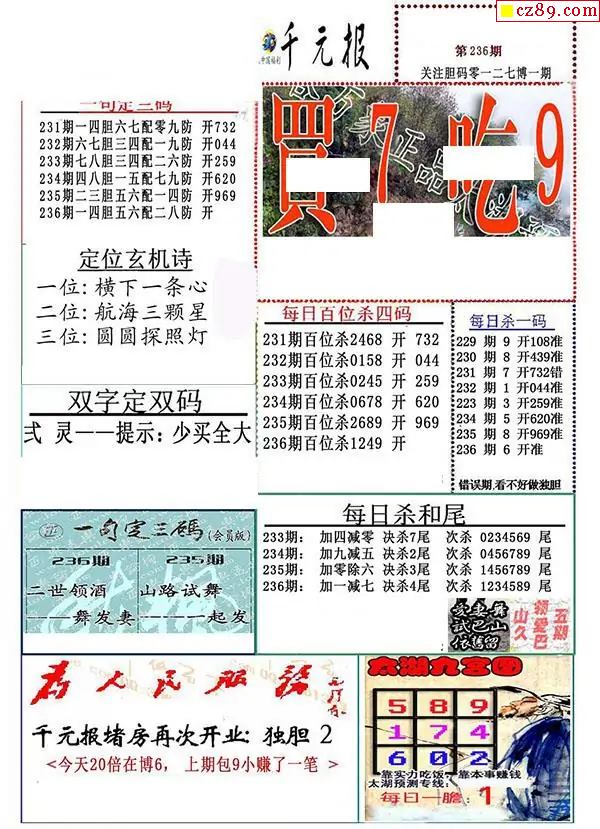 cz89.com
千元报
中国福利
第236期
关注胆码零一二七博一期
一句定三码
231期一四胆六七配零九防 开732
232期六七胆三四配一九防 开044
233期七八胆三四配二六防 开259
234期四八胆一五配七九防 开620
235期二三胆五六配一四防 开969
236期一四胆五六配二八防 开
買7吃9
定位玄机诗
一位: 横下一条心
二位: 航海三颗星
三位: 圆圆探照灯
每日百位杀四码
231期百位杀2468 开 732
232期百位杀0158 开 044
233期百位杀0245 开 259
234期百位杀0678 开 620
235期百位杀2689 开 969
236期百位杀1249 开
每日杀一码
229 期 9 开108准
230 期 8 开439准
231 期 7 开732错
232 期 1 开044准
233 期 3 开259准
234 期 5 开620准
235 期 8 开969准
236 期 6 开准
错误期,看不好做独胆
双字定双码
弍 灵——提示: 少买全大
一句定三碼(会员版)
236期 235期
二世领酒 山路试舞
——舞发妻 ———起发
每日杀和尾
233期: 加四减零 决杀7尾 次杀 0234569 尾
234期: 加九减五 决杀2尾 次杀 0456789 尾
235期: 加零除六 决杀3尾 次杀 1456789 尾
236期: 加一减七 决杀4尾 次杀 1234589 尾
为人民服务
千元报堵房再次开业: 独胆 2
<今天20倍在博6, 上期包9小赚了一笔 >
太湖九宫图
5 8 9
1 7 4
6 0 2
靠实力吃饭, 靠本事赚钱
太湖预测专线:
每日一胆: 1